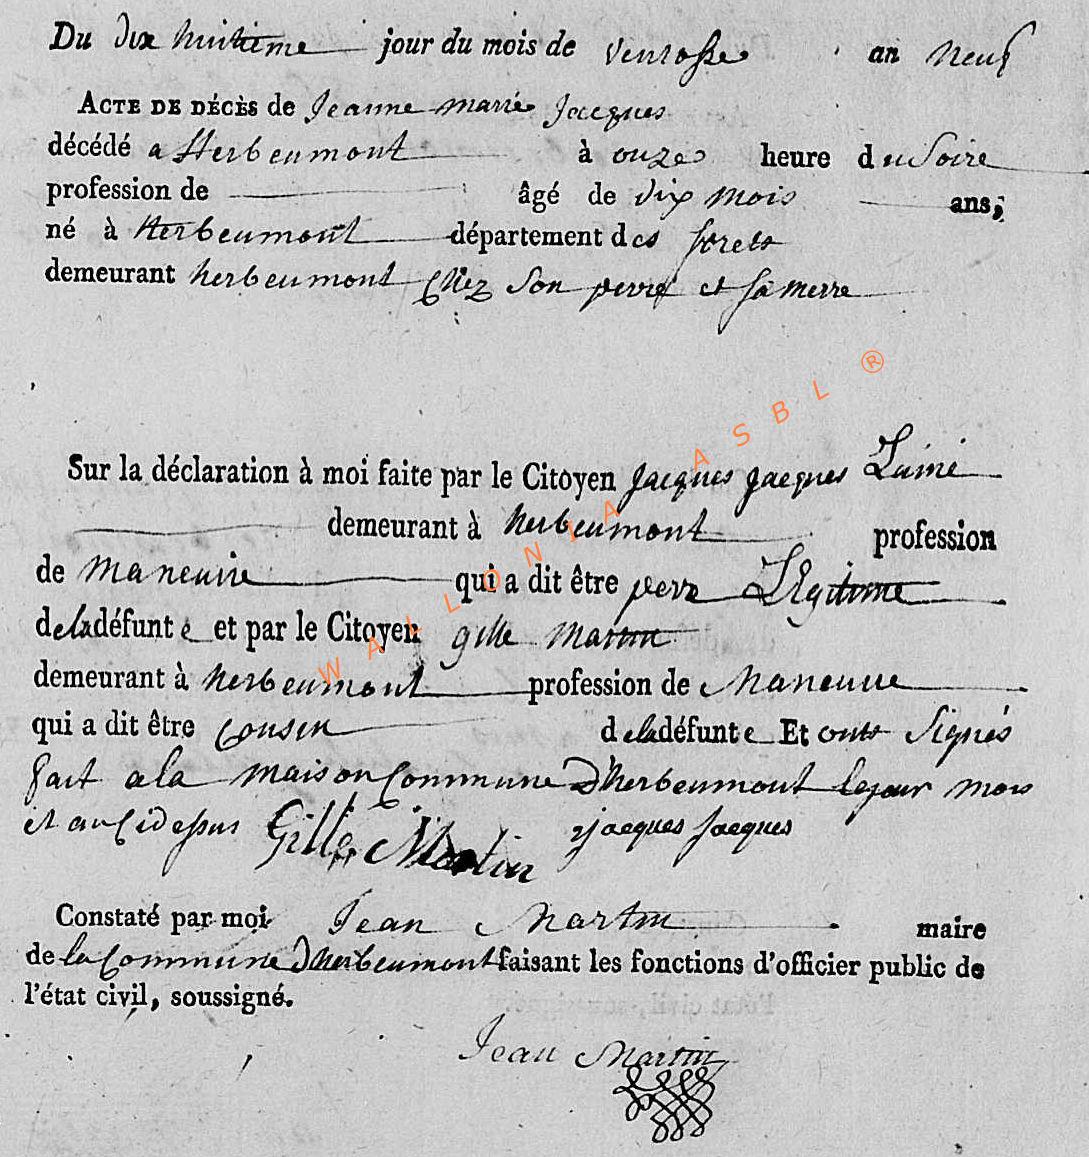 Du dix huitieme jour du mois de ventosse an neuf
ACTE DE DÉCÈS de Jeanne marie Jacques
décédé a Herbeumont à onze heure du Soire
profession de âgé de dix mois ans,
né à Herbeumont département des forets
demeurant herbeumont chez Son perre et sa merre
Sur la déclaration à moi faite par le Citoyen Jacques Jacques Lainé
demeurant à herbeumont profession
de maneuvre qui a dit être perre Légitime
de la défunte et par le Citoyen gille martin
demeurant à herbeumont profession de Maneuvre
qui a dit être cousin de la défunte Et onts Signés
fait a la maison Commune D'herbeumont le jour mois
et an Cidessus Gille Martin jacques jacques
Constaté par moi Jean Martin maire
de la Commune D'herbeumont faisant les fonctions d'officier public de
l'état civil, soussigné.
Jean Martin
WALLONIA ASBL ®